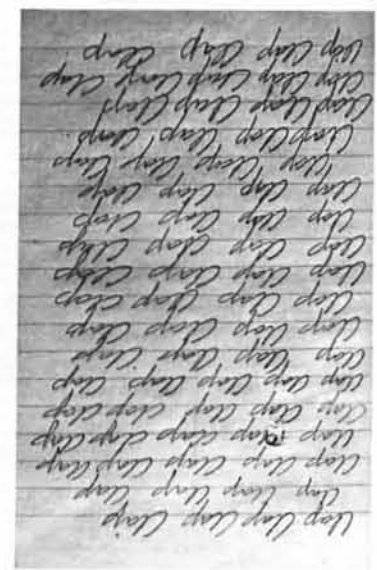 Clap Clap Clap Clap
Clap Clap Clap Clap
Clap Clap Clap Clap Clap
Clap Clap Clap Clap
Clap Clap Clap Clap Clap
Clap Clap Clap Clap Clap
Clap Clap Clap Clap
Clap Clap Clap Clap
Clap Clap Clap Clap
Clap Clap Clap Clap
Clap Clap Clap Clap
Clap Clap Clap Clap
Clap Clap Clap Clap
Clap Clap Clap Clap
Clap Clap Clap Clap
Clap Clap Clap Clap
Clap Clap Clap Clap Clap
Clap Clap Clap Clap